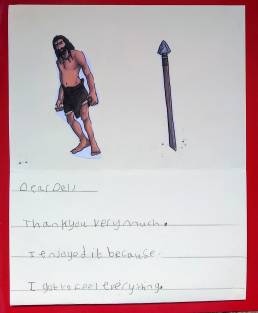 Dear Deli
Thankyou very much.
I enjoyed it because.
I got to feel everything.